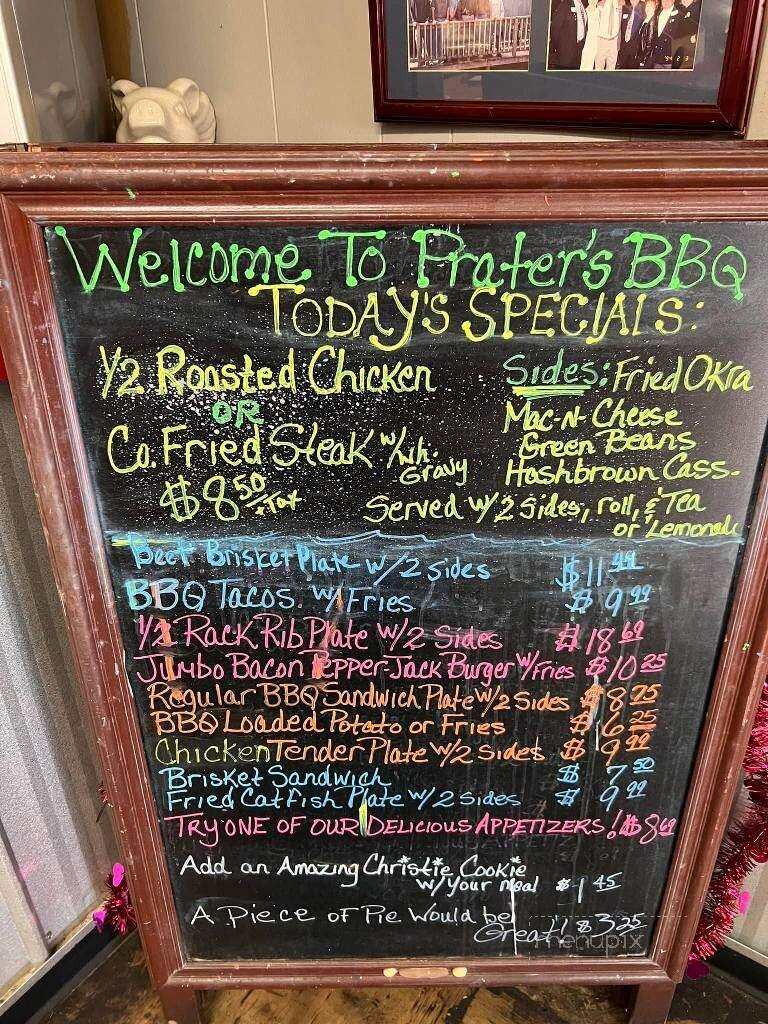 Welcome To Prater's BBQ
TODAY'S SPECIALS:
1/2 Roasted Chicken
OR
Co. Fried Steak w/wh. Gravy
$8.50 +Tax
Sides: Fried Okra
Mac-N-Cheese
Green Beans
Hashbrown Cass.
Served w/2 sides, roll, & Tea
or Lemonade
Beef Brisket Plate w/2 sides $11.49
BBQ Tacos w/Fries $9.99
1/2 Rack Rib Plate w/2 Sides $18.69
Jumbo Bacon Pepper-Jack Burger w/Fries $10.25
Regular BBQ Sandwich Plate w/2 Sides $8.75
BBQ Loaded Potato or Fries $6.25
Chicken Tender Plate w/2 sides $9.99
Brisket Sandwich $7.50
Fried Catfish Plate w/2 Sides $9.99
TRY ONE OF OUR DELICIOUS APPETIZERS! $8.69
Add an Amazing Christie Cookie
w/your meal $1.45
A Piece of Pie Would be
Great! $3.25
menupix